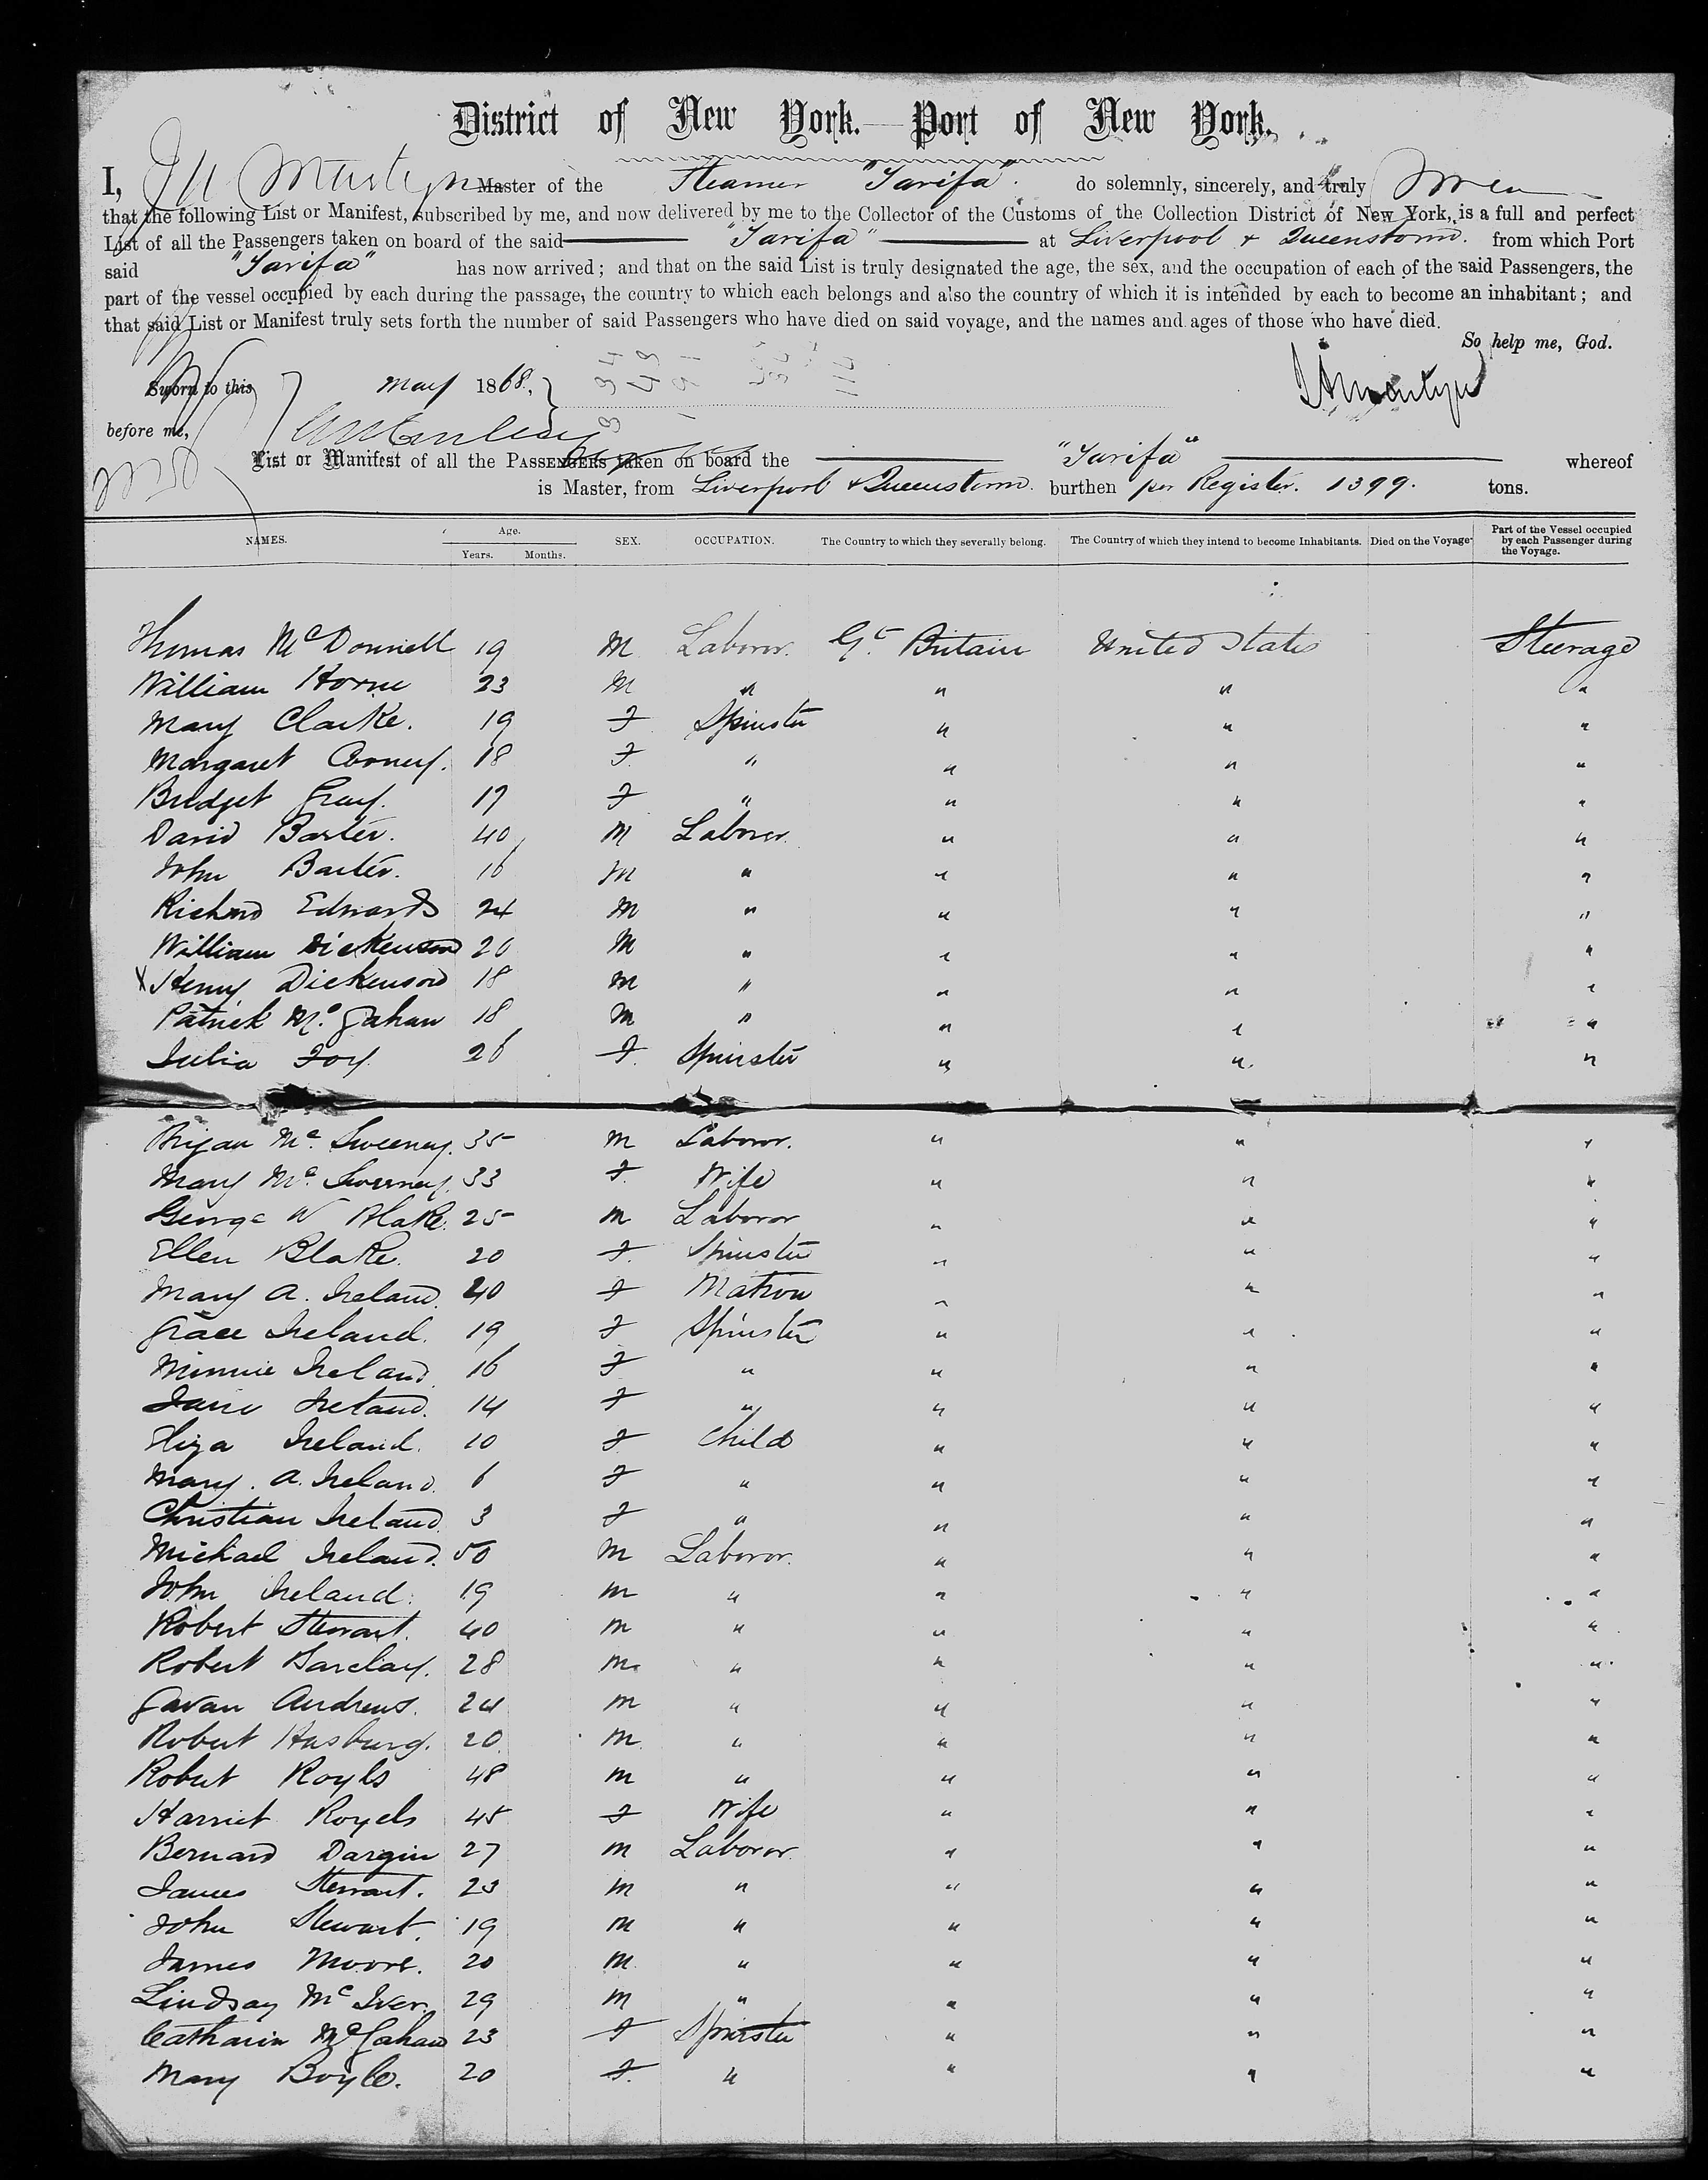 District of New York.—Port of New York.
I, Martyn Master of the Steamer "Tarifa". do solemnly, sincerely, and truly
that the following List or Manifest, subscribed by me, and now delivered by me to the Collector of the Customs of the Collection District of New York, is a full and perfect
List of all the Passengers taken on board of the said "Tarifa" at Liverpool & Queenstown. from which Port
said "Tarifa" has now arrived; and that on the said List is truly designated the age, the sex, and the occupation of each of the said Passengers, the
part of the vessel occupied by each during the passage, the country to which each belongs and also the country of which it is intended by each to become an inhabitant; and
that said List or Manifest truly sets forth the number of said Passengers who have died on said voyage, and the names and ages of those who have died.
So help me, God.
Sworn to this May 1868,
Martyn
before me,
List or Manifest of all the PASSENGERS taken on board the "Tarifa" whereof
is Master, from Liverpool & Queenstown. burthen per Register. 1399. tons.
NAMES. Age. Years. Months. SEX. OCCUPATION. The Country to which they severally belong. The Country of which they intend to become Inhabitants. Died on the Voyage Part of the Vessel occupied by each Passenger during the Voyage.
Thomas McDonnell 19 M Laborer. Gt. Britain United States Steerage
William Horne 23 M " " " "
Mary Clarke. 19 F Spinster " " "
Margaret Cooney. 18 F. " " " "
Bridget Gray. 17 F " " " "
David Baxter. 40 M Laborer. " " "
John Baxter. 16 M " " " "
Richard Edwards 24 M " " " "
William Dickenson 20 M " " " "
X Henry Dickenson 18 M " " " "
Patrick Mc Gahan 18 M " " " "
Julia Foy. 26 F. Spinster " " "
Mc Sweeney. 35 M Laborer. " " "
Mary Mc Sweeney. 33 F. Wife " " "
George W Blake. 25 M Laborer " " "
Ellen Blake. 20 F. Spinster " " "
Mary A. Ireland. 40 F Matron " " "
Grace Ireland. 19 F Spinster " " "
Minnie Ireland. 16 F " " " "
Jane Ireland. 14 F " " " "
Eliza Ireland. 10 F Child " " "
Mary. A. Ireland. 6 F " " " "
Christian Ireland. 3 F " " " "
Michael Ireland. 50 M Laborer. " " "
John Ireland. 19 M " " " "
Robert Stewart. 40 M " " " "
Robert Barclay. 28 M " " " "
Gavan Andrews. 24 M " " " "
Robert Hasburg. 20 M. " " " "
Robert Royls 48 M " " " "
Harriet Royels 45 F Wife " " "
Bernard Dargin 27 M Laborer. " " "
James Stewart. 23 M " " " "
John Stewart. 19 M " " " "
James Moore. 20 M. " " " "
Lindsay Mc Iver. 29 M " " " "
Catharin McGahan 23 F Spinster " " "
Mary Boyle. 20 F. " " " "